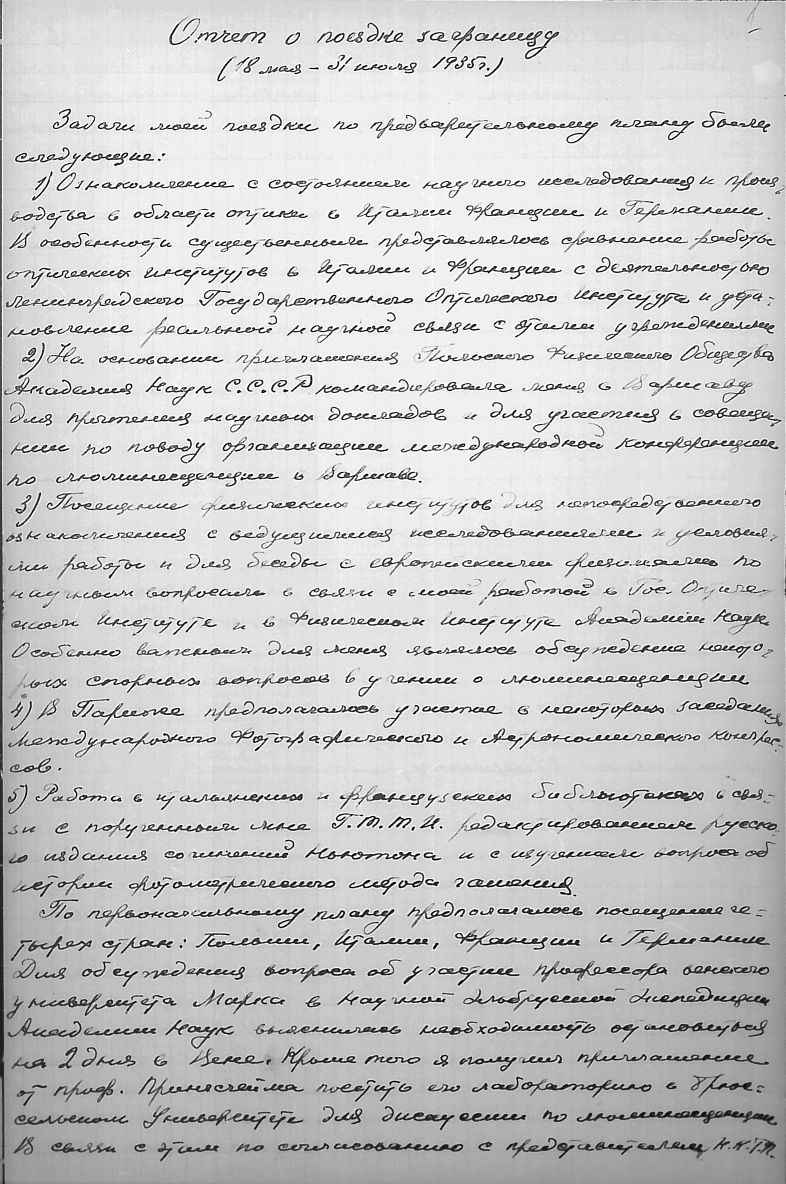 Отчет о поездке заграницу
(18 мая – 31 июля 1935г.)
Задачи моей поездки по предварительному плану были
следующие:
1) Ознакомление с состоянием научного исследования и произ-
водства в области оптики в Италии Франции и Германии.
В особенности существенным представлялось сравнение работы
оптических институтов в Италии и Франции с деятельностью
Ленинградского Государственного Оптического Института и уста-
новление реальной научной связи с этими учреждениями
2) На основании приглашения Польского Физического Общества
Академия Наук С.С.С.Р. командировала меня в Варшаву
для прочтения научных докладов и для участия в совеща-
нии по поводу организации международной конференции
по люминесценции в Варшаве.
3) Посещение физических институтов для непосредственного
ознакомления с ведущимися исследованиями и условия-
ми работы и для беседы с европейскими физиками по
научным вопросам в связи с моей работой в Гос. Оптиче-
ском Институте и в Физическом Институте Академии Наук
Особенно важным для меня являлось обсуждение некото-
рых спорных вопросов в учении о люминесценции
4) В Париже предполагалось участие в некоторых заседаниях
Международного Фотографического и Астрономического конгрес-
сов.
5) Работа в итальянских и французских библиотеках в свя-
зи с порученным мне Г.Т.Т.И. редактированием русско-
го издания сочинений Ньютона и с изучением вопроса об
истории фотометрического метода гашения.
По первоначальному плану предполагалось посещение че-
тырех стран: Польши, Италии, Франции и Германии
Для обсуждения вопроса об участии профессора венского
университета Марка в Научной Эльбрусской Экспедиции
Академии Наук выяснилась необходимость остановиться
на 2 дня в Вене. Кроме того я получил приглашение
от проф. Принсгейма посетить его лабораторию в Брюс-
сельском Университете для дискуссии по люминесценции
В связи с этим по согласованию с представителем Н.К.Т.П.